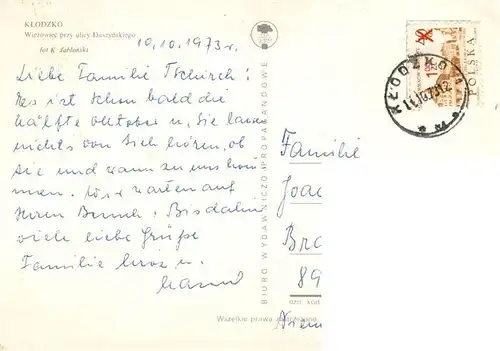 KŁODZKO
Wieżowiec przy ulicy Daszyńskiego
fot K. Jabłoński
10.10.1973 r.
Liebe Familie Tschirch!
Es ist schon bald die
hälfte oktober u. Sie lassen
nichts von Sich hören, ob
Sie und wann zu uns kom
men. Wir warten auf
Ihren Besuch. Bis dahin
viele liebe Grüße
Familie u.
BIURO WYDAWNICZO-PROPAGANDOWE
Wszelkie prawa zastrzeżone
Familie
Joac
Bra
89
ozn kod
POLSKA
KŁODZKO 1